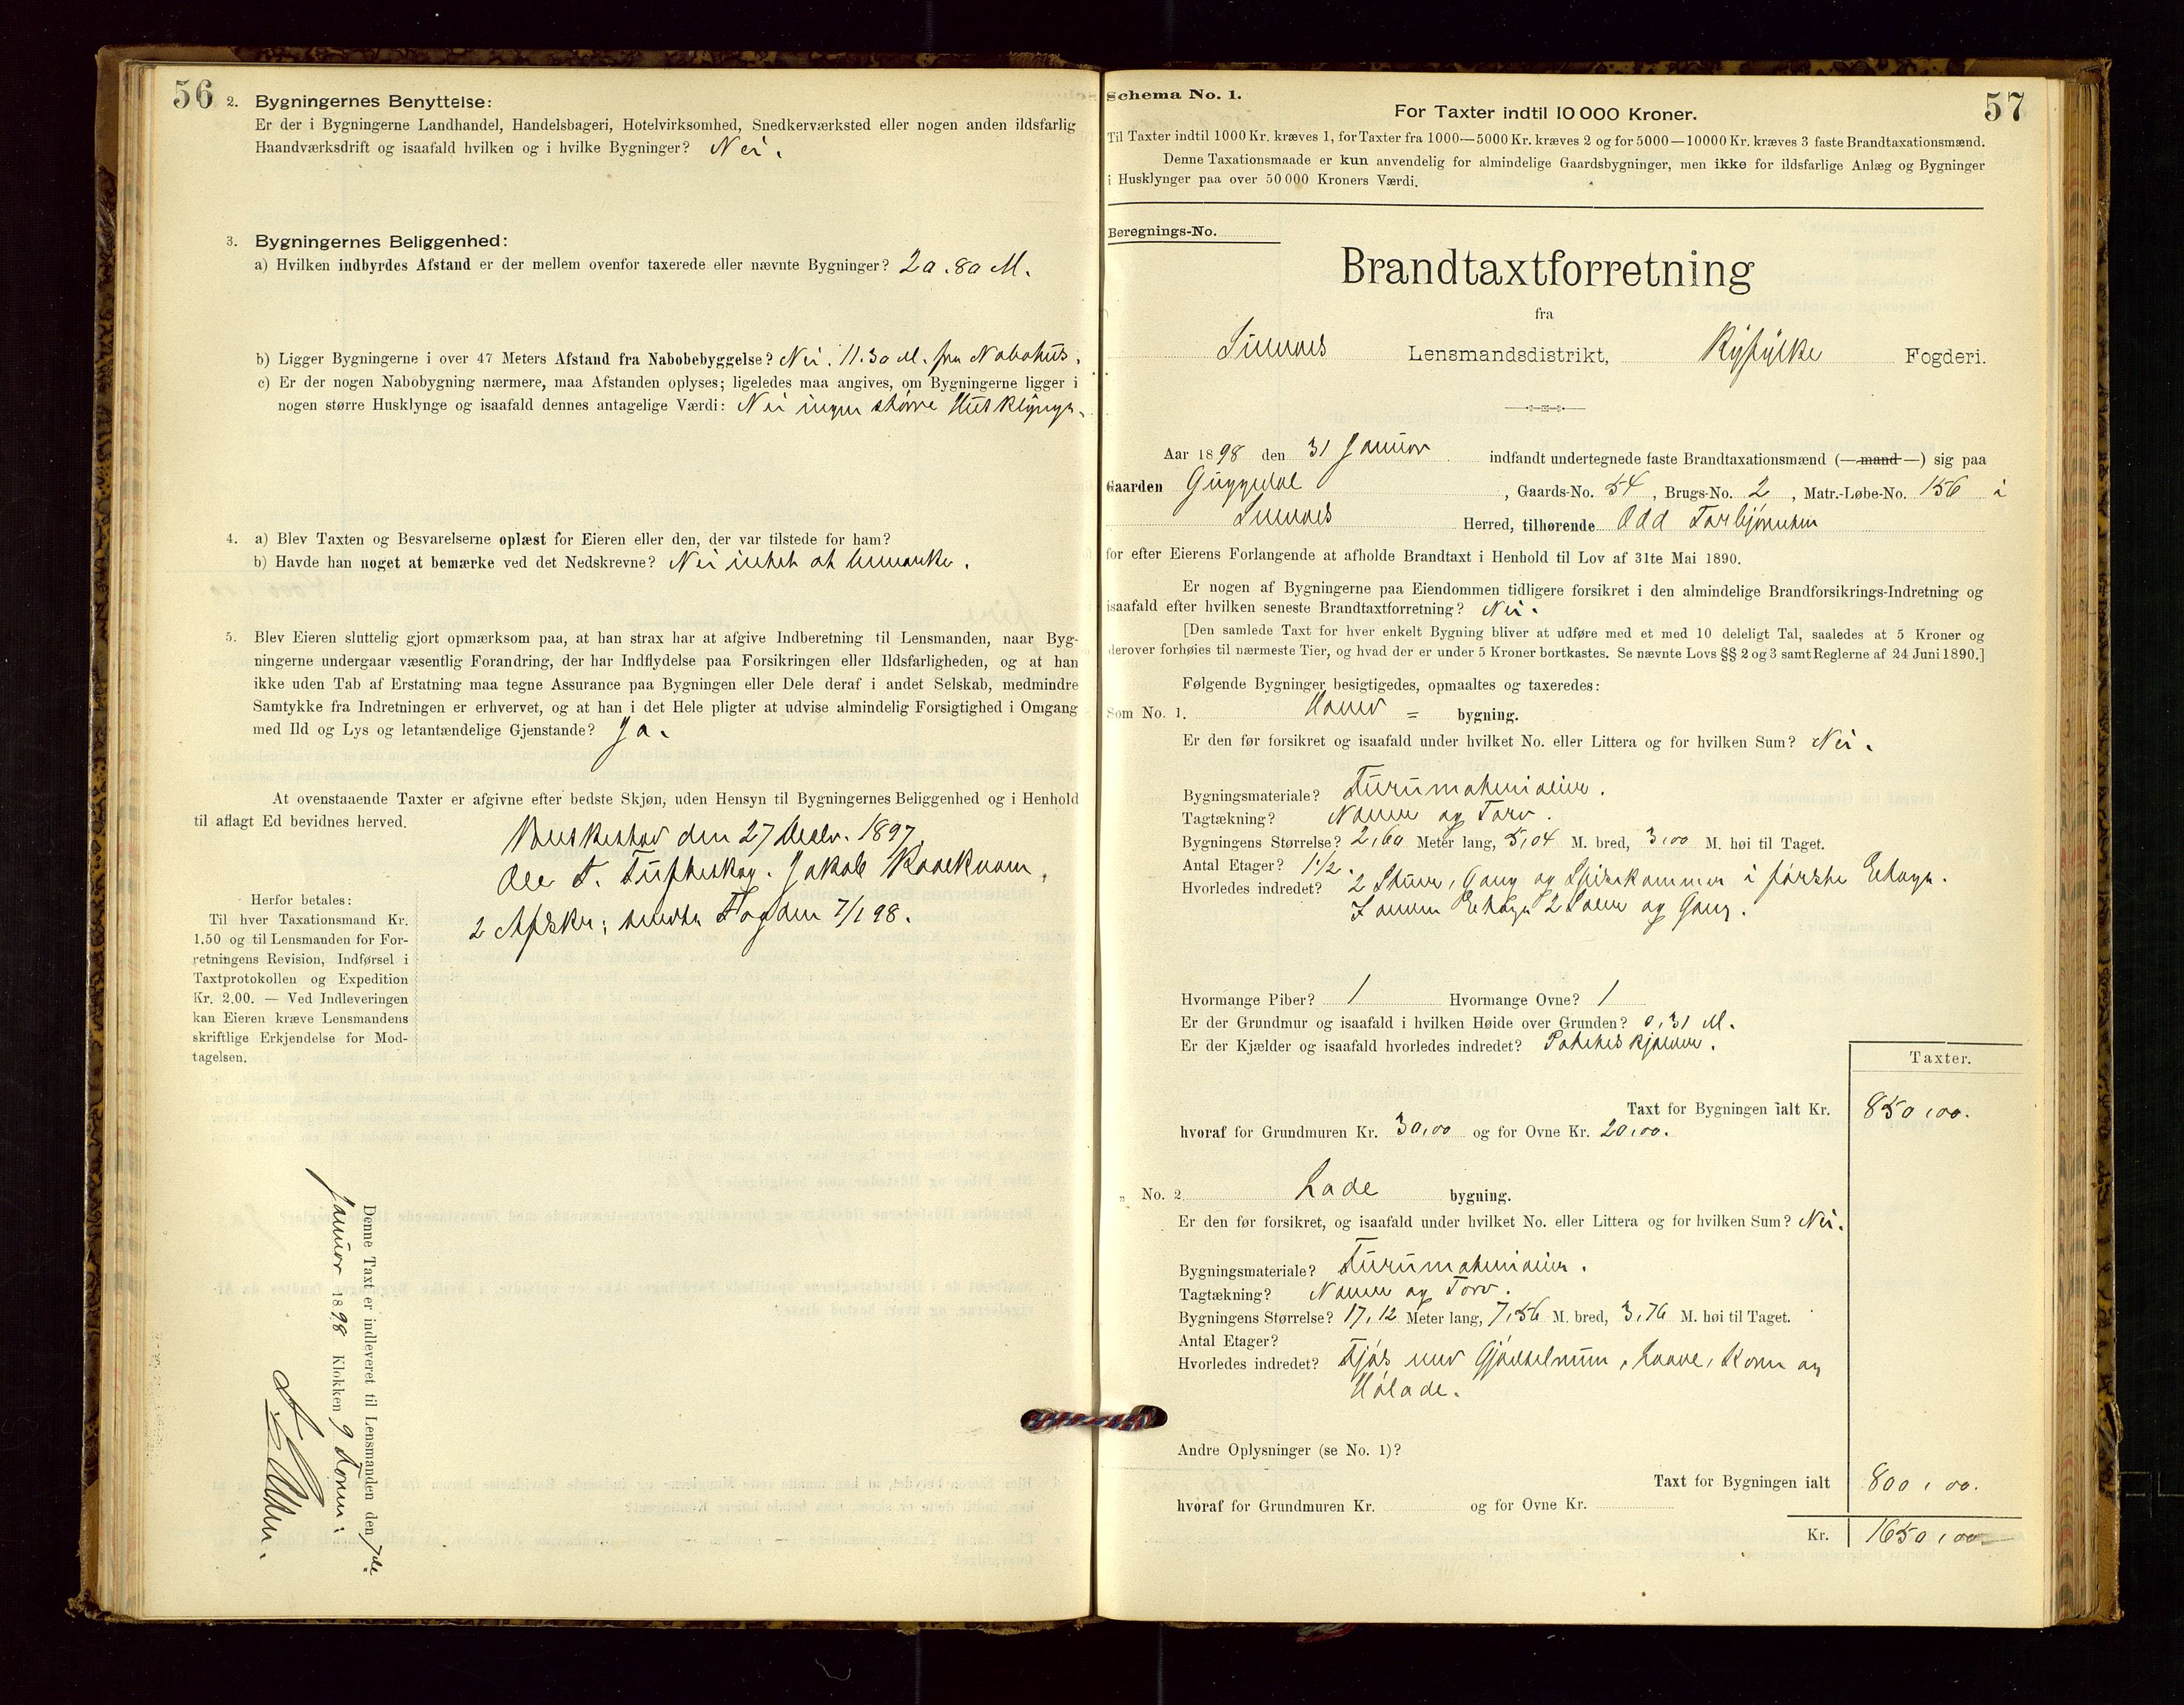 56
2. Bygningernes Benyttelse:
Er der i Bygningerne Landhandel, Handelsbageri, Hotelvirksomhed, Snedkerværksted eller nogen anden ildsfarlig
Haandværksdrift og isaafald hvilken og i hvilke Bygninger? Nei.
3. Bygningernes Beliggenhed:
a) Hvilken indbyrdes Afstand er der mellem ovenfor taxerede eller nævnte Bygninger? 20.80 M.
b) Ligger Bygningerne i over 47 Meters Afstand fra Nabobebyggelse? Nei. 11.30 M. fra Nabohus.
c) Er der nogen Nabobygning nærmere, maa Afstanden oplyses; ligeledes maa angives, om Bygningerne ligger i
nogen større Husklynge og isaafald dennes antagelige Værdi: Nei ingen større Husklynge.
4. a) Blev Taxten og Besvarelserne oplæst for Eieren eller den, der var tilstede for ham?
b) Havde han noget at bemærke ved det Nedskrevne? Nei intet at bemærke.
5. Blev Eieren sluttelig gjort opmærksom paa, at han strax har at afgive Indberetning til Lensmanden, naar Byg-
ningerne undergaar væsentlig Forandring, der har Indflydelse paa Forsikringen eller Ildsfarligheden, og at han
ikke uden Tab af Erstatning maa tegne Assurance paa Bygningen eller Dele deraf i andet Selskab, medmindre
Samtykke fra Indretningen er erhvervet, og at han i det Hele pligter at udvise almindelig Forsigtighed i Omgang
med Ild og Lys og letantændelige Gjenstande? Ja.
At ovenstaaende Taxter er afgivne efter bedste Skjøn, uden Hensyn til Bygningernes Beliggenhed og i Henhold
til aflagt Ed bevidnes herved.
den 27 Decbr. 1897.
Ole T. Jakob
2 Afskr. sendte Fogden 7/1 98.
Herfor betales:
Til hver Taxationsmand Kr.
1.50 og til Lensmanden for For-
retningens Revision, Indførsel i
Taxtprotokollen og Expedition
Kr. 2.00. — Ved Indleveringen
kan Eieren kræve Lensmandens
skriftlige Erkjendelse for Mod-
tagelsen.
Denne Taxt er indleveret til Lensmanden den 7de
Januar 1898 Klokken 9 Form:
57
Schema No. 1.
For Taxter indtil 10 000 Kroner.
Til Taxter indtil 1000 Kr. kræves 1, for Taxter fra 1000—5000 Kr. kræves 2 og for 5000—10000 Kr. kræves 3 faste Brandtaxationsmænd.
Denne Taxationsmaade er kun anvendelig for almindelige Gaardsbygninger, men ikke for ildsfarlige Anlæg og Bygninger
i Husklynger paa over 50 000 Kroners Værdi.
Beregnings-No.
Brandtaxtforretning
fra
Lensmandsdistrikt, Ryfylke Fogderi.
Aar 1898 den 31 Januar indfandt undertegnede faste Brandtaxationsmænd (—mand—) sig paa
Gaarden Guggedal, Gaards-No. 54, Brugs-No. 2, Matr.-Løbe-No. 156 i
Herred, tilhørende Odd Torbjørnsen
for efter Eierens Forlangende at afholde Brandtaxt i Henhold til Lov af 31te Mai 1890.
Er nogen af Bygningerne paa Eiendommen tidligere forsikret i den almindelige Brandforsikrings-Indretning og
isaafald efter hvilken seneste Brandtaxtforretning? Nei.
[Den samlede Taxt for hver enkelt Bygning bliver at udføre med et med 10 deleligt Tal, saaledes at 5 Kroner og
derover forhøies til nærmeste Tier, og hvad der er under 5 Kroner bortkastes. Se nævnte Lovs §§ 2 og 3 samt Reglerne af 24 Juni 1890.]
Følgende Bygninger besigtigedes, opmaaltes og taxeredes:
Som No. 1. Hoved = bygning.
Er den før forsikret og isaafald under hvilket No. eller Littera og for hvilken Sum? Nei.
Bygningsmateriale? Furumaterialier.
Tagtækning? Næver og Torv.
Bygningens Størrelse? 2,60 Meter lang, 5,04 M. bred, 3,00 M. høi til Taget.
Antal Etager? 1½.
Hvorledes indredet? 2 Stuer, Gang og Spisekammer i første Etage.
Etage 2 og Gang.
Hvormange Piber? 1 Hvormange Ovne? 1
Er der Grundmur og isaafald i hvilken Høide over Grunden? 0,31 M.
Er der Kjælder og isaafald hvorledes indredet? Poteteskjælder.
Taxter.
Taxt for Bygningen ialt Kr. 850,00.
hvoraf for Grundmuren Kr. 30,00 og for Ovne Kr. 20,00.
„ No. 2 Lade bygning.
Er den før forsikret, og isaafald under hvilket No. eller Littera og for hvilken Sum? Nei.
Bygningsmateriale? Furumaterialier.
Tagtækning? Næver og Torv.
Bygningens Størrelse? 17,12 Meter lang, 7,56 M. bred, 3,76 M. høi til Taget.
Antal Etager?
Hvorledes indredet? Fjøs med Gjødselrum, Laave, Korn og
Hølade.
Andre Oplysninger (se No. 1)?
Taxt for Bygningen ialt 800,00.
hvoraf for Grundmuren Kr. og for Ovne Kr.
Kr. 1650,00